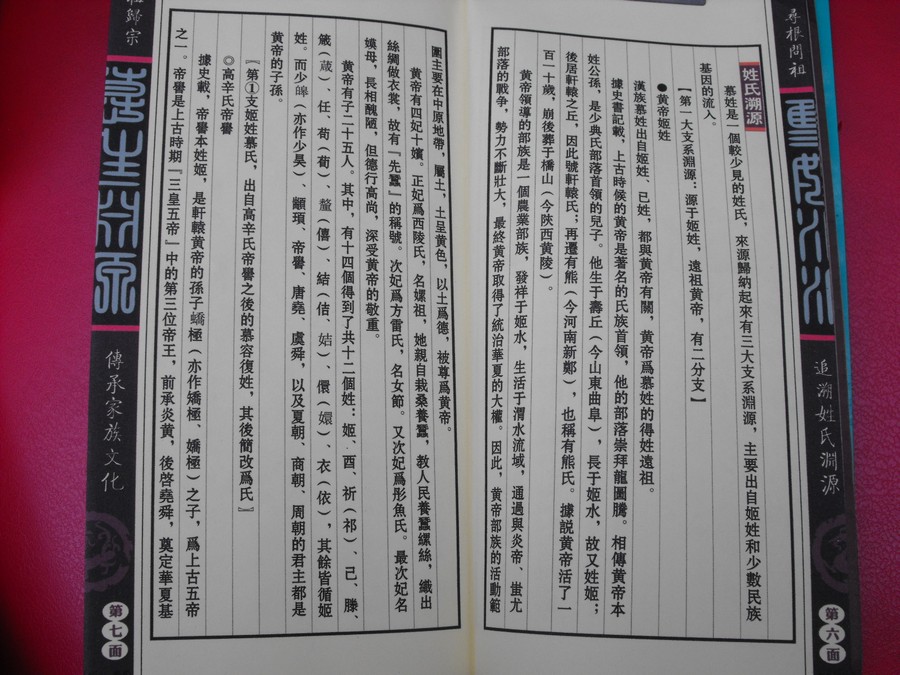 尋根問祖
追溯姓氏淵源
第六面
姓氏溯源
慕姓是一個較少見的姓氏，來源歸納起來有三大支系淵源，主要出自姬姓和少數民族
基因的流入。
【第一大支系淵源：源于姬姓，遠祖黄帝，有二分支】
●黄帝姬姓
漢族慕姓出自姬姓、已姓，都與黄帝有關，黄帝爲慕姓的得姓遠祖。
據史書記載，上古時候的黄帝是著名的氏族首領，他的部落崇拜龍圖騰。相傳黄帝本
姓公孫，是少典氏部落首領的兒子。他生于壽丘（今山東曲阜），長于姬水，故又姓姬；
後居軒轅之丘，因此號軒轅氏；再遷有熊（今河南新鄭），也稱有熊氏。據説黄帝活了一
百一十歲，崩後葬于橋山（今陝西黄陵）。
黄帝領導的部族是一個農業部族，發祥于姬水，生活于渭水流域，通過與炎帝、蚩尤
部落的戰争，勢力不斷壯大，最終黄帝取得了統治華夏的大權。因此，黄帝部族的活動範
圍主要在中原地帶，屬土，土呈黄色，以土爲德，被尊爲黄帝。
黄帝有四妃十嬪。正妃爲西陵氏，名嫘祖，她親自栽桑養蠶，教人民養蠶繅絲，織出
絲綢做衣裳，故有『先蠶』的稱號。次妃爲方雷氏，名女節。又次妃爲彤魚氏。最次妃名
嫫母，長相醜陋，但德行高尚，深受黄帝的敬重。
黄帝有子二十五人。其中，有十四個得到了共十二個姓：姬、酉、祈（祁）、己、滕、
箴（葴）、任、荀（荀）、釐（僖）、結（佶、姞）、儇（嬛）、衣（依），其餘皆循姬
姓。而少皞（亦作少昊）、顓頊、帝嚳、唐堯、虞舜，以及夏朝、商朝、周朝的君主都是
黄帝的子孫。
『第①支姬姓慕氏，出自高辛氏帝嚳之後的慕容復姓，其後簡改爲氏』
◎高辛氏帝嚳
據史載，帝嚳本姓姬，是軒轅黄帝的孫子蟜極（亦作矯極、嬌極）之子，爲上古五帝
之一。帝嚳是上古時期『三皇五帝』中的第三位帝王，前承炎黄，後啓堯舜，奠定華夏基
歸宗
傳承家族文化
第七面